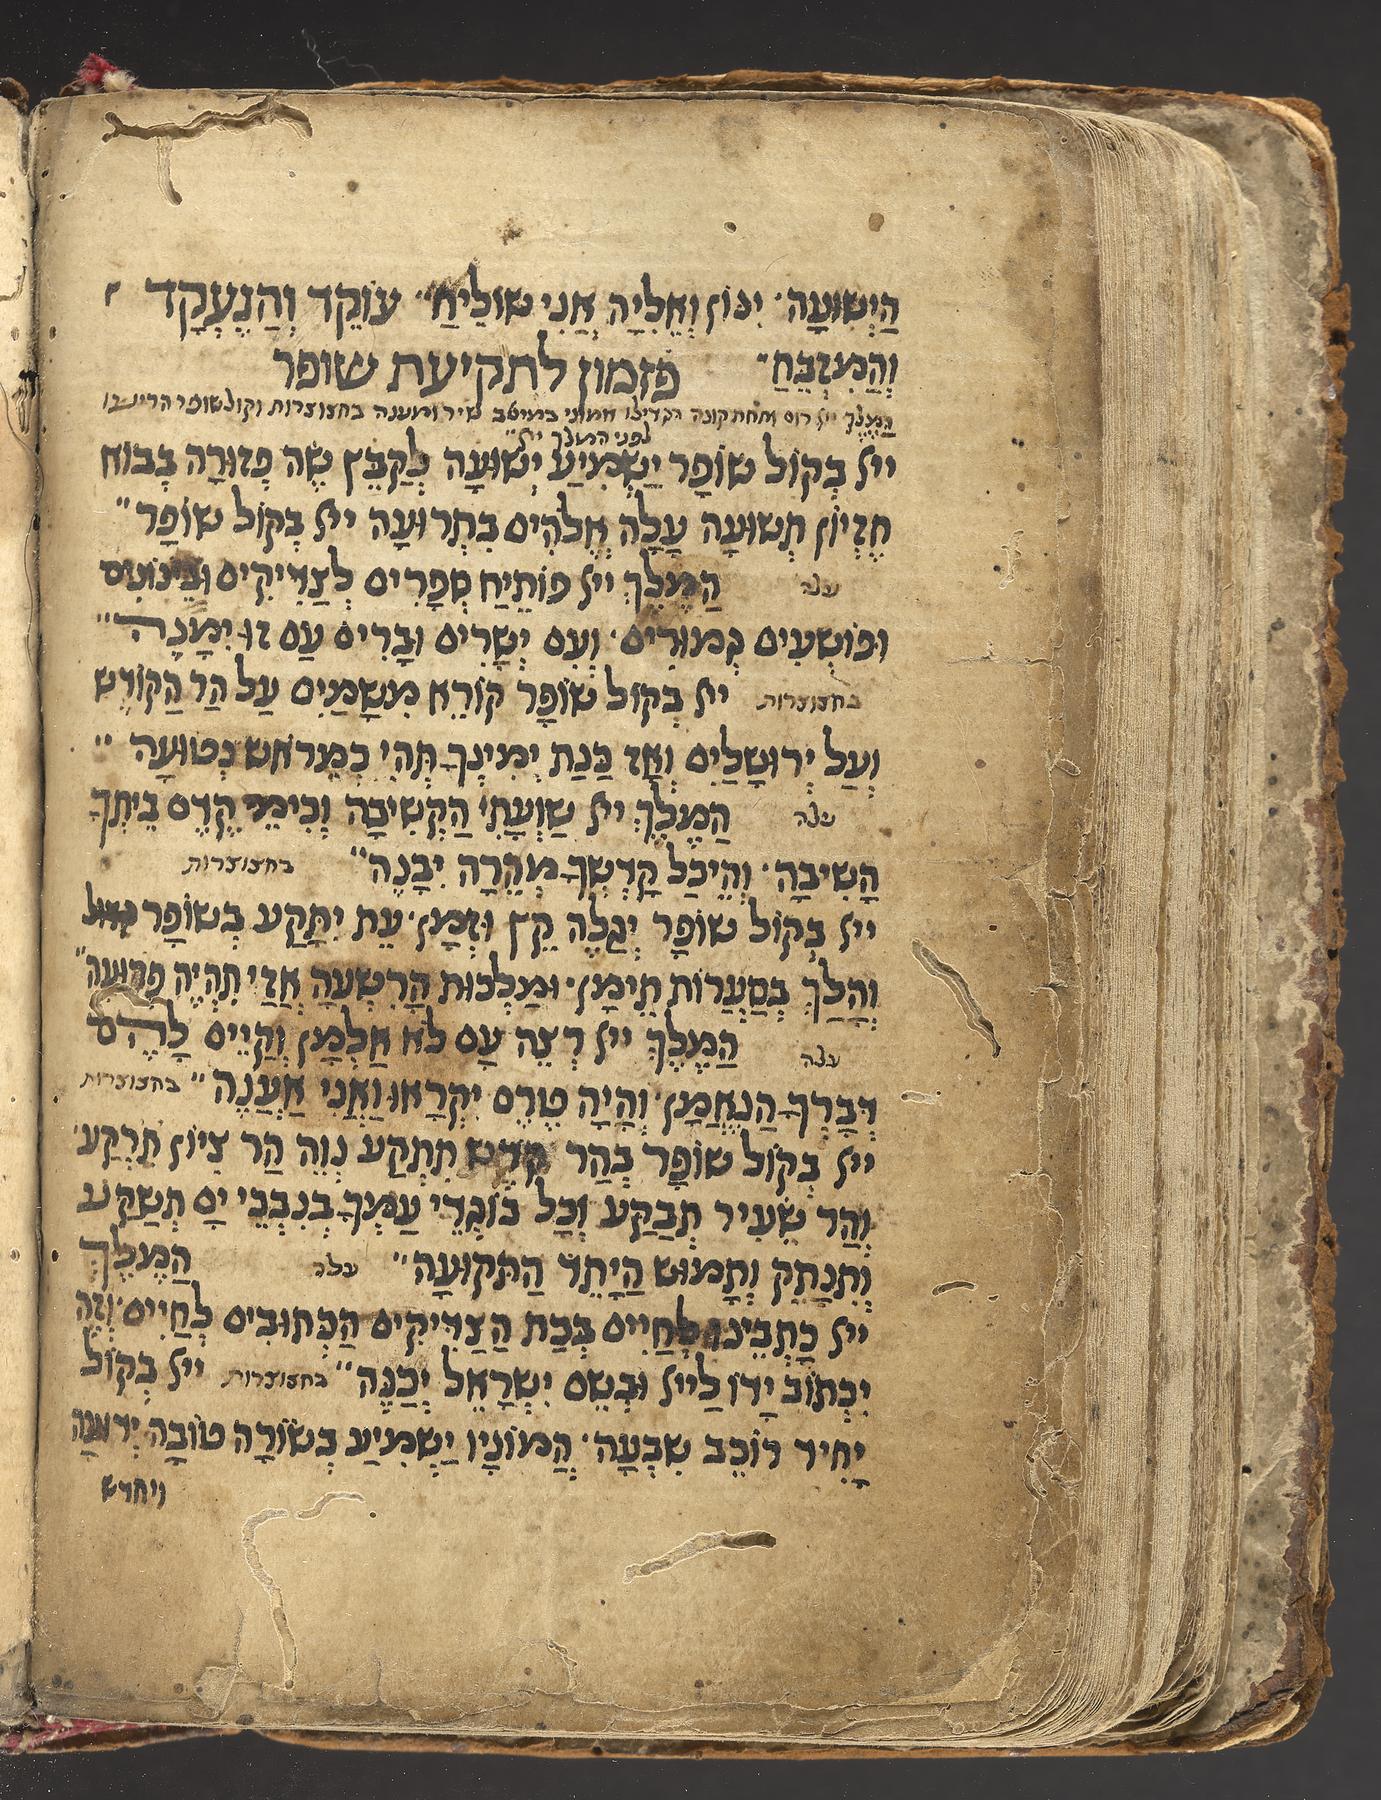 הַיְשׁוּעָה׳ יִנּוֹן וְאֵלִיָה אֲנִי שׁוֹלֵיחַ׳ עוֹקֵד וְהַנֶעְקָד
וְהַמִזְבֵּחַ׳ פזמון לתקיעת שופר
הַמֶלֶךְ ייל רוס ותחת קונה שיר ומענה בחצוצרות וקול שופר הריעו
לפני המלך ייל
ייל בְּקוֹל שׁוֹפָר יַשְׁמִיעַ יְשׁוּעָה לְקַבֵּץ שֶׂה פְזוּרָה בְּבוֹא
חֶזְיוֹן תְּשׁוּעָה עָלָה אֱלֹהִים בִּתְרוּעָה ייל בְּקוֹל שׁוֹפָר״
עלה הַמֶלֶךְ ייל פּוֹתֵיחַ סְפָרִים לְצַדִיקִים וּבֵינוֹנִים
וּפוֹשְׁעִים גְמוּרִים׳ וְעִם יְשָׁרִים וּבָרִים עַם זוּ יִמָנֶה״
בחצוצרות ייל בְּקוֹל שׁוֹפָר קוֹרֵא מִשָׁמַיִם עַל הַר הַקוֹדֶשׁ
וְעַל יְרוּשָׁלַיִם וְאָז כַּנַת יְמִינְךָ תְּהִי כְּמֵרֹאשׁ נְטוּעָה״
עלה הַמֶלֶךְ ייל שַׁוְעָתִי הַקְשִׁיבָה וְכִימֵי קֶדֶם בֵּיתְךָ
הָשִׁיבָה׳ וְהֵיכַל קָדְשְׁךָ מְהֵרָה יִבָּנֶה״ בחצוצרות
ייל בְּקוֹל שׁוֹפָר יְגַלֶה קֵץ וּזְמָן׳ עֵת יִתָּקַע בְּשׁוֹפָר
וְהָלַךְ בְּסַעֲרוֹת תֵּימָן׳ וּמַלְכוּת הָרִשְׁעָה אֲזַי תִּהְיֶה פְרוּעָה״
עלה הַמֶלֶךְ ייל רְצֵה עַם לֹא אַלְמָן וְקַיֵים לָהֶם
דְבָרְךָ הַנֶאֱמָן׳ וְהָיָה טֶרֶם יִקְרָאוּ וַאֲנִי אֶעֱנֶה״ בחצוצרות
ייל בְּקוֹל שׁוֹפָר בְּהַר קֹדֶשׁ תִּתְקַע נְוֵה הַר צִיוֹן תִּרְקַע׳
וְהַר שֵׂעִיר תְּבַקַע וְכָל בּוֹגְדֵי עַמְךָ בְּנִבְכֵי יָם תְּשַׁקַע
וְתִנָתֵק וְתָמוּשׁ הַיָתֵד הַתְּקוּעָה״ עלה הַמֶלֶךְ
ייל כָּתְבֵינוּ לְחַיִים בְּכַת הַצַדִיקִים הַכְּתוּבִים לְחַיִים׳ וְזֶה
יִכְתוֹב יָדוֹ לַייל וּבְשֵׁם יִשְׂרָאֵל יְכַנֶה״ בחצוצרות ייל בְּקוֹל
יָחִיד רוֹכֵב שִׁבְעָה׳ הֲמוֹנָיו יַשְׁמִיעַ בְּשׂוֹרָה טוֹבָה
ויחדש